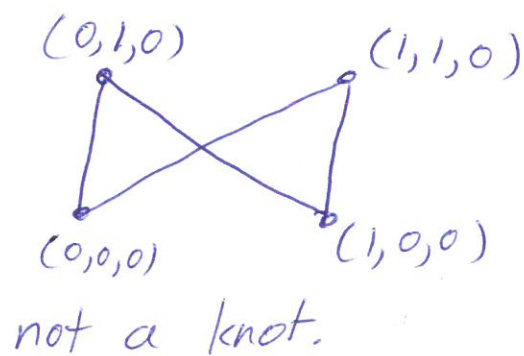 (0,1,0) (1,1,0)
(0,0,0) (1,0,0)
not a knot.